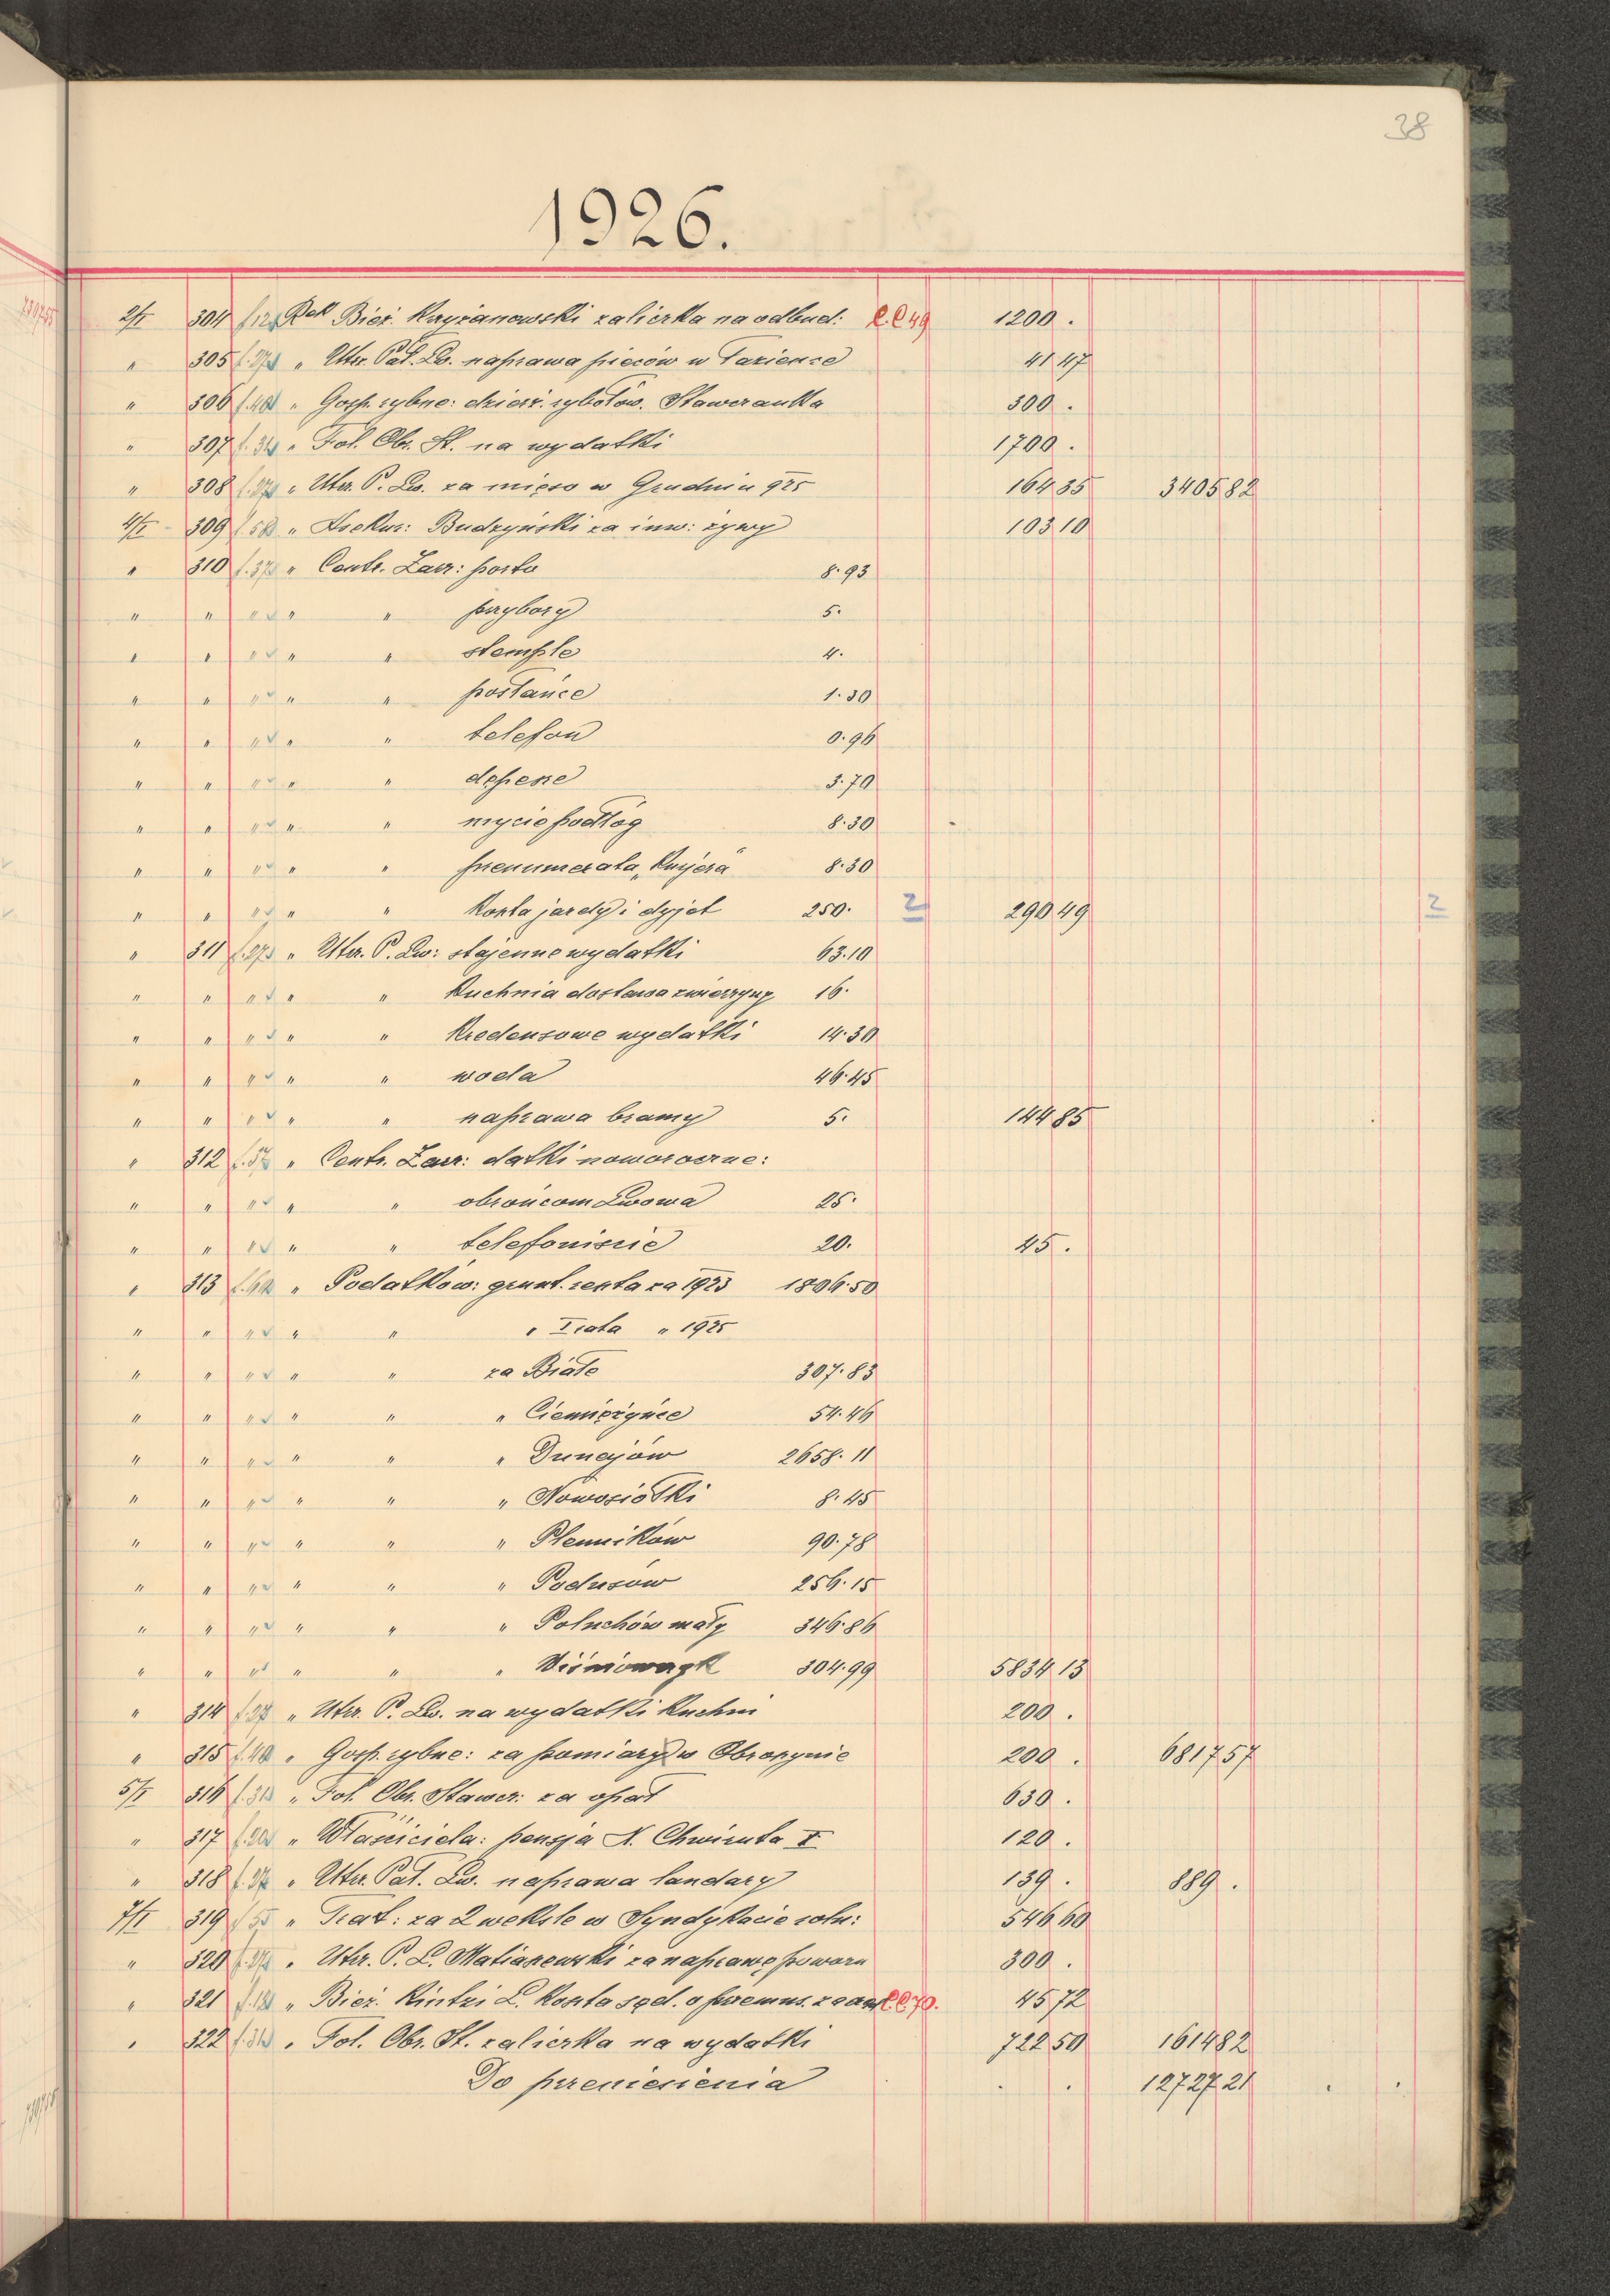 38
1926.
2/I 304 f.12 Rek Bież. Krzyżanowski zaliczka na odbud: L.C49 1200 .
" 305 f.27 " Utrz. Pał. Lw. naprawa pieców w Łazience 41 47
" 306 f.40 " Gosp. rybne: dzierż. rybołów. Stawczanka 300 .
" 307 f.31 " Fol. Obr. St. na wydatki 1700 .
" 308 f.27 " Utrz. P. Lw. za mięso w Grudniu 925 164 35 3405 82
4/I 309 f.58 " Asekur: Budzyński za inw: żywy 103 10
" 310 f.37 " Centr. Zarz: porto 8.93
" " " " " przybory 5.
" " " " " stemple 4.
" " " " " posłańce 1.30
" " " " " telefon 0.96
" " " " " depesze 3.70
" " " " " mycie podłóg 8.30
" " " " " prenumerata „Kurjera" 8.30
" " " " " koszta jazdy i dyjet 250. 2 290 49 2
" 311 f.27 " Utrz. P. Lw: stajenne wydatki 63.10
" " " " " Kuchnia dostawa zwierzyny 16.
" " " " " Kredensowe wydatki 14.30
" " " " " woda 46.45
" " " " " naprawa bramy 5. 144 85
" 312 f.37 " Centr. Zarz: datki noworoczne:
" " " " " obrońcom Lwowa 25.
" " " " " telefoniście 20. 45 .
" 313 " Podatków: grunt. reszta za 1923 1806.50
" " " " " " I rata " 1925
" " " " " za Białe 307.83
" " " " " " Ciemięrzyńce 54.46
" " " " " " Dunajów 2658.11
" " " " " " Nowosiółki 8.45
" " " " " " Pleników 90.78
" " " " " " Podusów 256.15
" " " " " " Poluchów mały 346.86
" " " " " " Wiśniowczyk 304.99 5834 13
" 314 f.27 " Utrz. P. Lw. na wydatki kuchni 200 .
" 315 f.40 " Gosp. rybne: za pomiary w Obroszynie 200 . 6817 57
5/I 316 f.31 " Fol. Obr. Stawcz: za opał 630 .
" 317 " Właściciela: pensja N. Chwiruta I 120 .
" 318 f.27 " Utrz. Pał. Lw. naprawa landary 139 . 889 .
7/I 319 f.55 " Trat: za 2 weksle w Syndykacie roln: 546 60
" 320 f.27 " Utrz. P. L. Matiaszewski za naprawę powozu 300 .
" 321 f.12 " Bież. Kintzi L. koszta sąd. o przemus. L.C70. 45 72
" 322 f.31 " Fol. Obr. St. zaliczka na wydatki 722 50 1614 82
Do przeniesienia . . 12727 21 . .